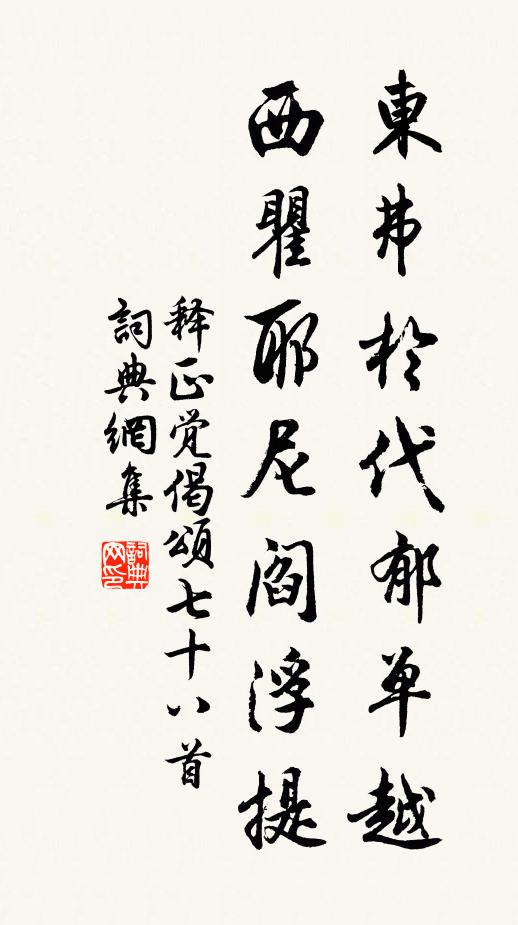 東弗於代郁单越
西瞿耶尼阎浮提
释正覚偈頌七十八首
詞典網集
詞典网印